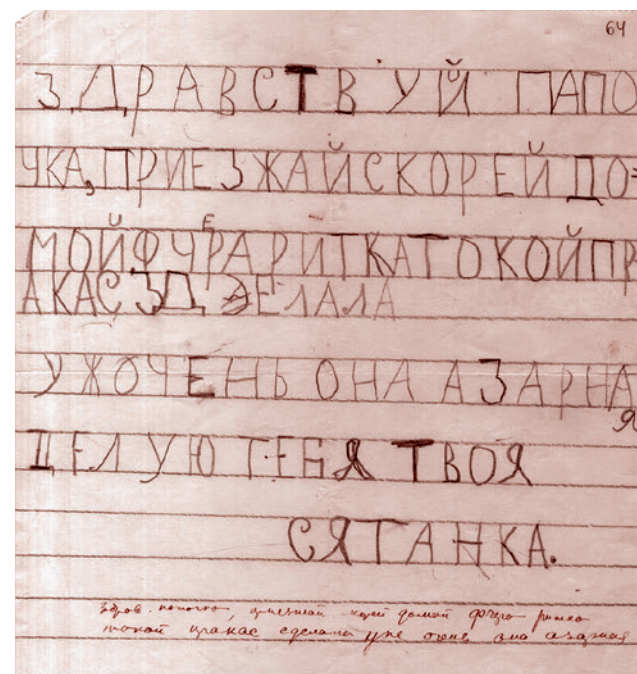 64
ЗДРАВСТВУЙ ПАПО
ЧКА, ПРИЕЗЖАЙ СКОРЕЙ ДО=
МОЙ ФЧЕРА РИТКА ТОКОЙ ПР
АКАС ЗДЭЕЛАЛА
УЖ ОЧЕНЬ ОНА АЗАРНА
Я
ЦЕЛУЮ ТЕБЯ ТВОЯ
СЯТАНКА.
здрав. папочка, приезжай скорей домой фчера ритка
токой пракас сделала уже очень она азарная